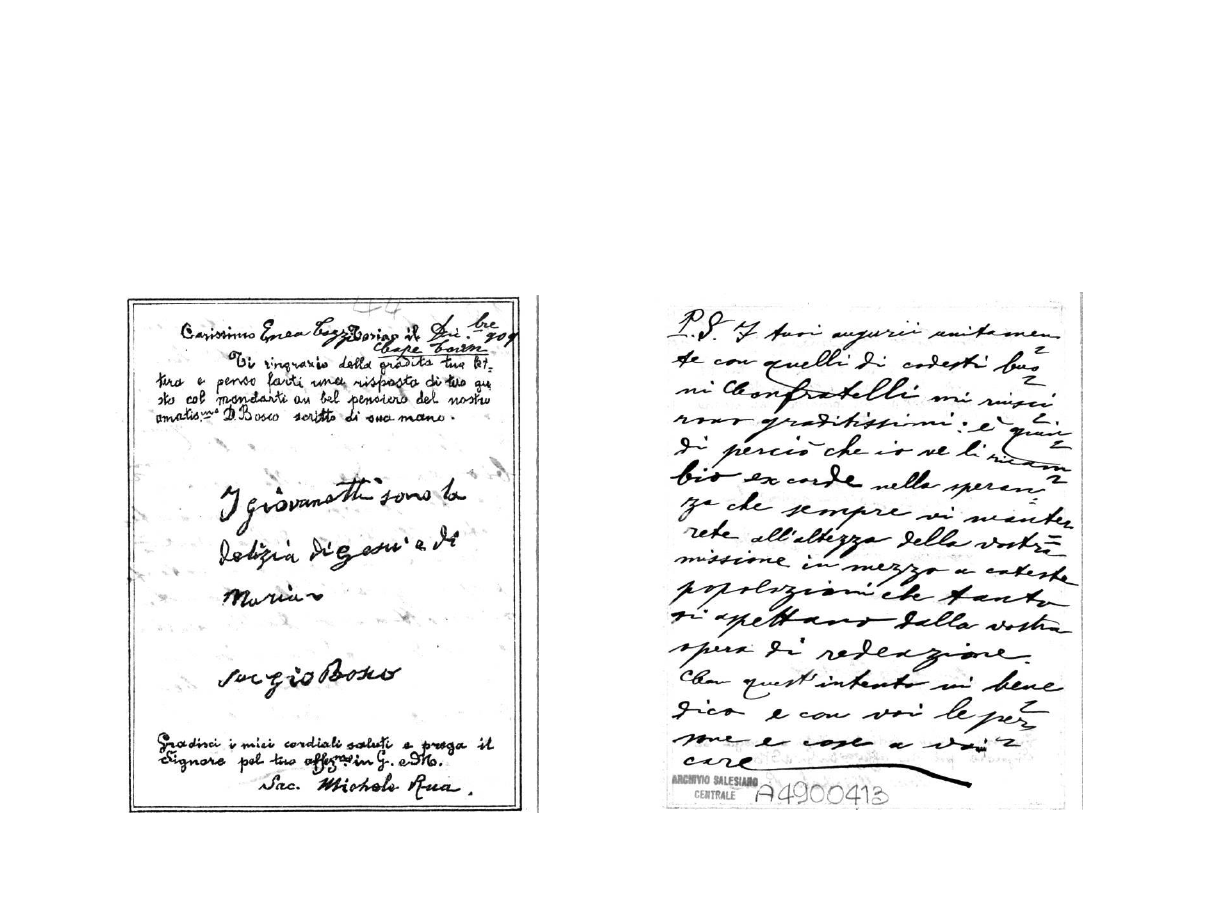 44
Carissimo Enea Tozzi Torino il Dic.bre 909
Cape Town
Ti ringrazio della gradita tua let=
tera e penso farti una risposta di tuo gu
sto col mandarti un bel pensiero del nostro
amatis.mo D. Bosco scritto di sua mano.
I giovanetti sono la
delizia di Gesù e di
Maria
Sac gio Bosco
Gradisci i miei cordiali saluti e prega il
Signore pel tuo affez.mo in G. e M.
Sac. Michele Rua.
P.S. I tuoi augurii unitamen
te con quelli di codesti buo
ni Confratelli mi riusci
rono graditissimi: è quin
di perciò che io ve li ricam
bio ex corde nella speran
za che sempre vi manter
rete all'altezza della vostra
missione in mezzo a coteste
popolazioni che tanto
si aspettano dalla vostra
opera di redenzione.
Con quest'intento vi bene
dico e con voi le per
sone e cose a voi
care
ARCHIVIO SALESIANO
CENTRALE A4900413